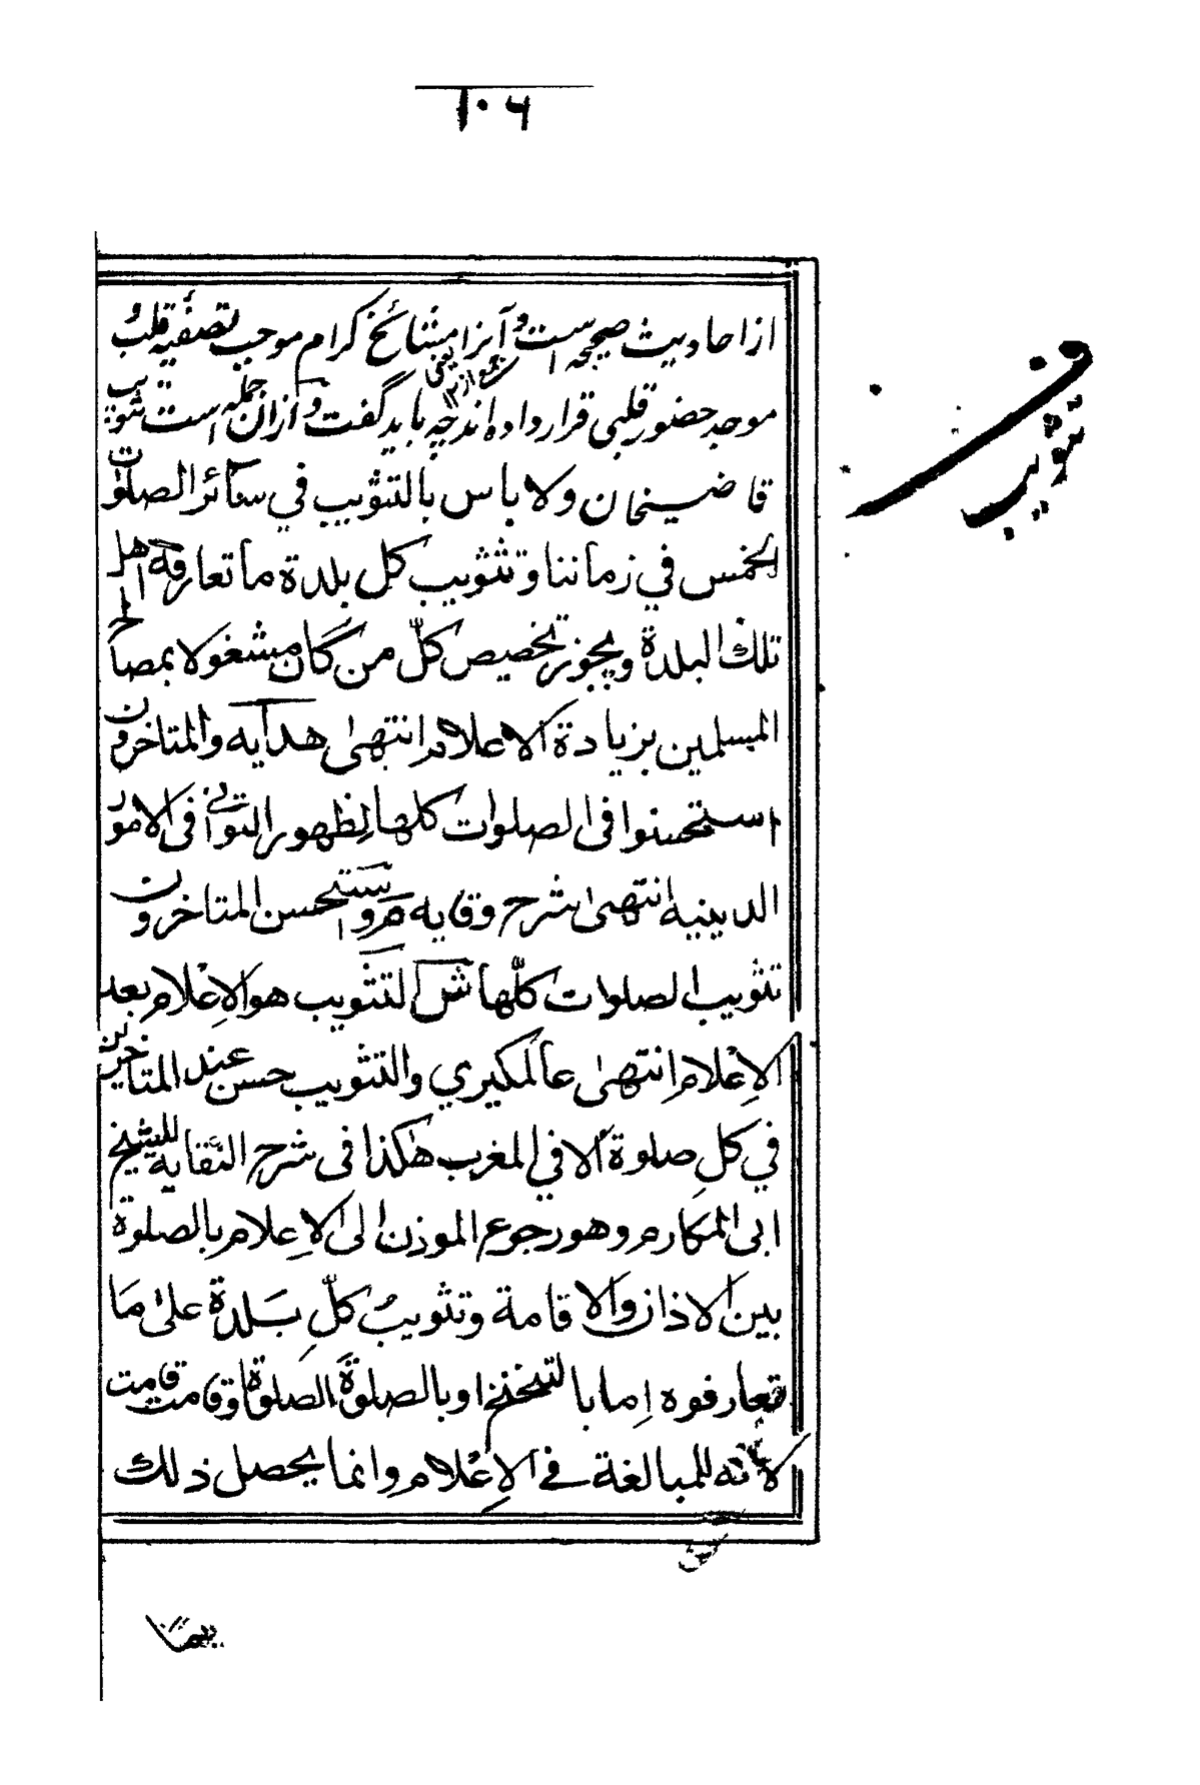 ۱۰۶
از احادیث صحیحه است و آنرا مشائخ کرام موجب تصفیه قلب و
موجد حضور قلبی قرار داده اند چه باید گفت و ازان جمله است تثویب
قاضیخان ولا باس بالتثویب في سآئر الصلوات
الخمس في زماننا وتثویب کل بلدة ما تعارفه اهل
تلك البلدة ویجوز تخصیص کلّ من کان مشغولا بمصالح
المسلمین بزیادة الاعلام انتهیٰ هدایه والمتاخرون
استحسنوا فی الصلوات کلها لظهور التوانی فی الامور
الدینیه انتهیٰ شرح وقایه م واستحسن المتاخرون
تثویب الصلوات کلّها ش التثویب هو الاِعْلام بعد
الاِعْلام انتهیٰ عالمکیري والتثویب حسن عند المتاخرین
في کلِ صلوة الا في المغرب هٰکذا فی شرح النقایه للشیخ
ابی المکارم وهو رجوع الموذن الی الاِعلام بالصلوة
بین الاذان والاقامة وتثویبُ کلِّ بَلدة علیٰ مَا
تعارفوه اِما بالتنحنح او بالصلوةَ الصلوة او قامت قامت
لانه للمبالغة في الاِعْلام وانما یحصل ذلك
ف
تثویب